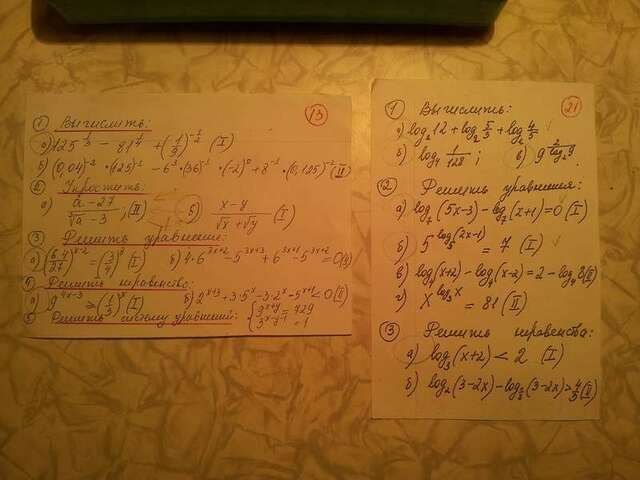 13
① Вычислить:
а) 125^(1/3) - 81^(1/4) + (1/3)^(-1/2) (I)
б) (0,04)^(-2) · (125)^(-1) - 6^(-3) · (36)^(-1) · (-2)^0 + 8^(-1) · (0,125)^(-2) (II)
② Упростить:
а) (a - 27)/(∛a - 3); (II) б) (x - y)/(√x + √y) (I)
③ Решить уравнение:
а) (64/27)^(x-2) = (3/4)^x (I) б) 4·6^(3x+2) - 5^(3x+3) + 6^(3x+1) - 5^(3x+2) = 0 (II)
Решить неравенство:
а) 9^(4x-3) ≥ (1/3)^x (I) б) 2^(x+3) + 3·5^x - 3·2^x - 5^(x+1) < 0 (II)
Решить систему уравнений: { 3^(x+y) = 729
3^(x-y-1) = 1
21
① Вычислить:
а) log₂12 + log₂ 5/3 + log₂ 4/5
б) log₄ 1/128; в) 9^(2/log₂9)
② Решить уравнения:
а) log₂(5x-3) - log₂(x+1) = 0 (I)
б) 5^(log₅(2x-1)) = 7 (I)
в) log₄(x+2) - log₄(x-2) = 2 - log₄8 (II)
г) x^(log₃x) = 81 (II)
③ Решить неравенства:
а) log₃(x+2) < 2 (I)